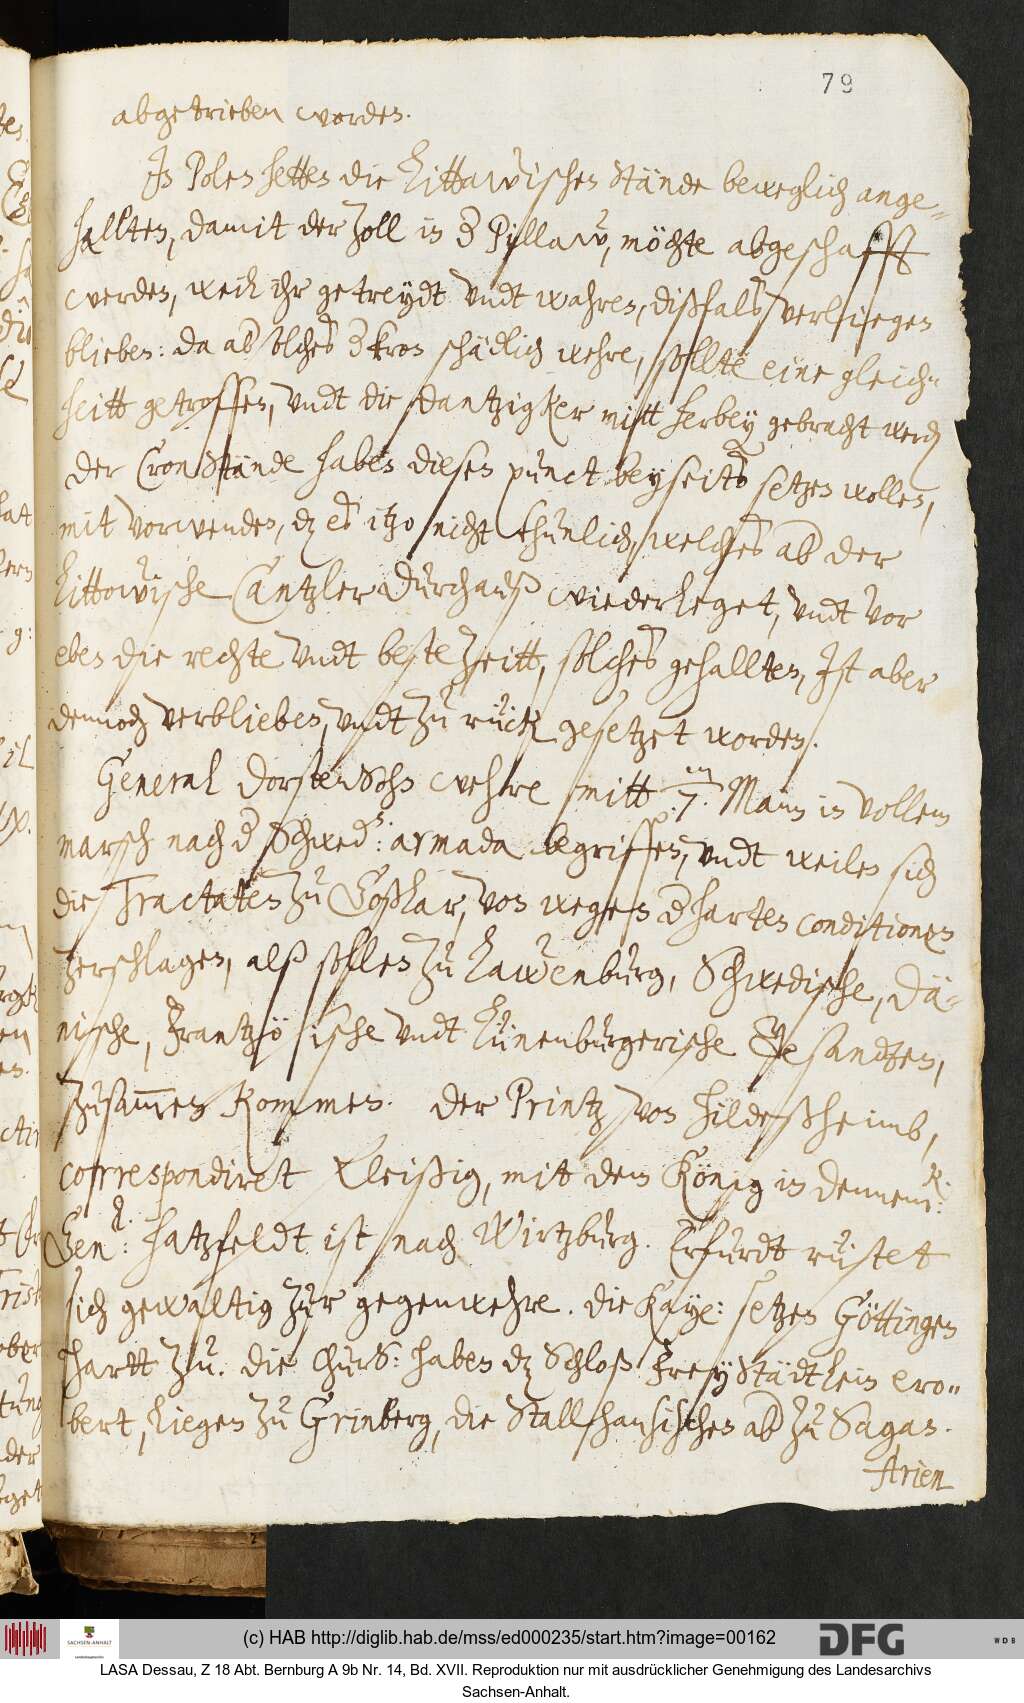 79
abgetrieben worden.
In Polen hetten die Littawischen Stände beweglich ange-
hallten, damit der Zoll in d Pyllaw, möchte abgeschafft
werden, weil ihr getreydt vndt wahren, dißfalß verliegen
blieben: da ab solches d kron schädlich wehre, sollte eine gleich-
heitt getroffen, vndt die dantzigker mitt herbey gebracht werd
der Cron Stände haben diesen punct beyseits setzen wollen,
mit vorwenden, dz es itzo nicht thunlich, welches ab der
Littowische Cantzler durchauß wiederleget, vndt vor
eben die rechte vndt beste Zeitt, solches gehallten, Ist aber
dennoch verblieben, vndt zu rück gesetzet worden.
General Dorstensohn wehre mitt m/7. Mann in vollem
marsch nach d Schwed: armada begriffen, vndt weilen sich
die Tractaten zu Goßlar, von wegen d harten conditionen
zerschlagen, alß sollen zu Lawenburg, Schwedische, Dä-
nische, Frantzösische vndt Lünenburgerische Gesandten,
zusam̅en kommen. Der Printz von Hildeßheimb,
correspondiret fleißig, mit dem König in dennem: k.
Gen: l. Hatzfeldt ist nach Wirtzburg. Erfurdt rüstet
sich gewaltig zur gegenwehre. die Kaye: setzen Göttingen
hartt zu. die ChurS: haben dz Schloß Freystädtlein ero-
bert, liegen zu Grinberg, die Stallhansischen ab zu Sagan.
Arien
(c) HAB http://diglib.hab.de/mss/ed000235/start.htm?image=00162
SACHSEN-ANHALT
DFG
WDB
LASA Dessau, Z 18 Abt. Bernburg A 9b Nr. 14, Bd. XVII. Reproduktion nur mit ausdrücklicher Genehmigung des Landesarchivs
Sachsen-Anhalt.